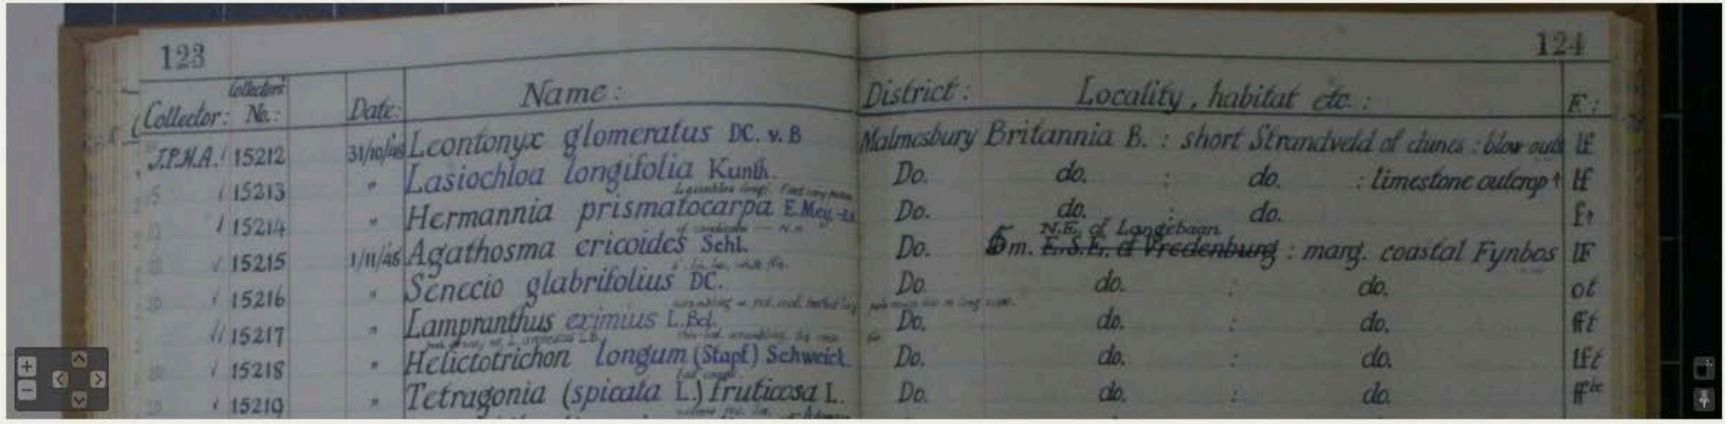 123 124
Collector: Collectors No.: Date: Name: District: Locality, habitat etc.: F:
J.P.H.A. 15212 31/10/48 Leontonyx glomeratus DC. v. B Malmesbury Britannia B. : short Strandveld of dunes : blow outs lf
15213 " Lasiochloa longifolia Kunth. Do. do. : do. : limestone outcrop lf
15214 " Hermannia prismatocarpa E.Mey. Do. do. : do.
N.E. of Langebaan
15215 1/11/48 Agathosma ericoides Schl. Do. 5 m. E.S.E. of Vredenburg : marg. coastal Fynbos lF
15216 " Senecio glabrifolius DC. Do. do. : do. ot
15217 " Lampranthus eximius L.Bol. Do. do. : do. fft
15218 " Helictotrichon longum (Stapf) Schweick. Do. do. : do. lft
15219 " Tetragonia (spicata L.) fruticosa L. Do. do. : do.